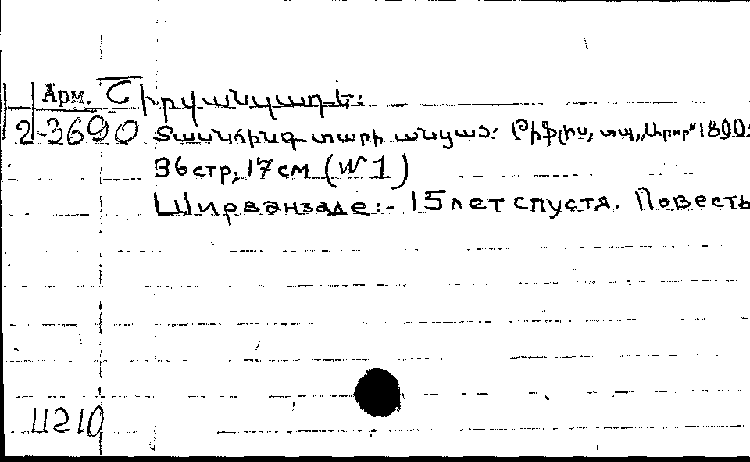 Арм. Շիրվանզադե:
2-3690 Տասնհինգ տարի անցած: Թիֆլիս, տպ. „Արոր" 1890:
36 стр, 17 см (№1)
Ширванзаде:- 15 лет спустя. Повесть
11210